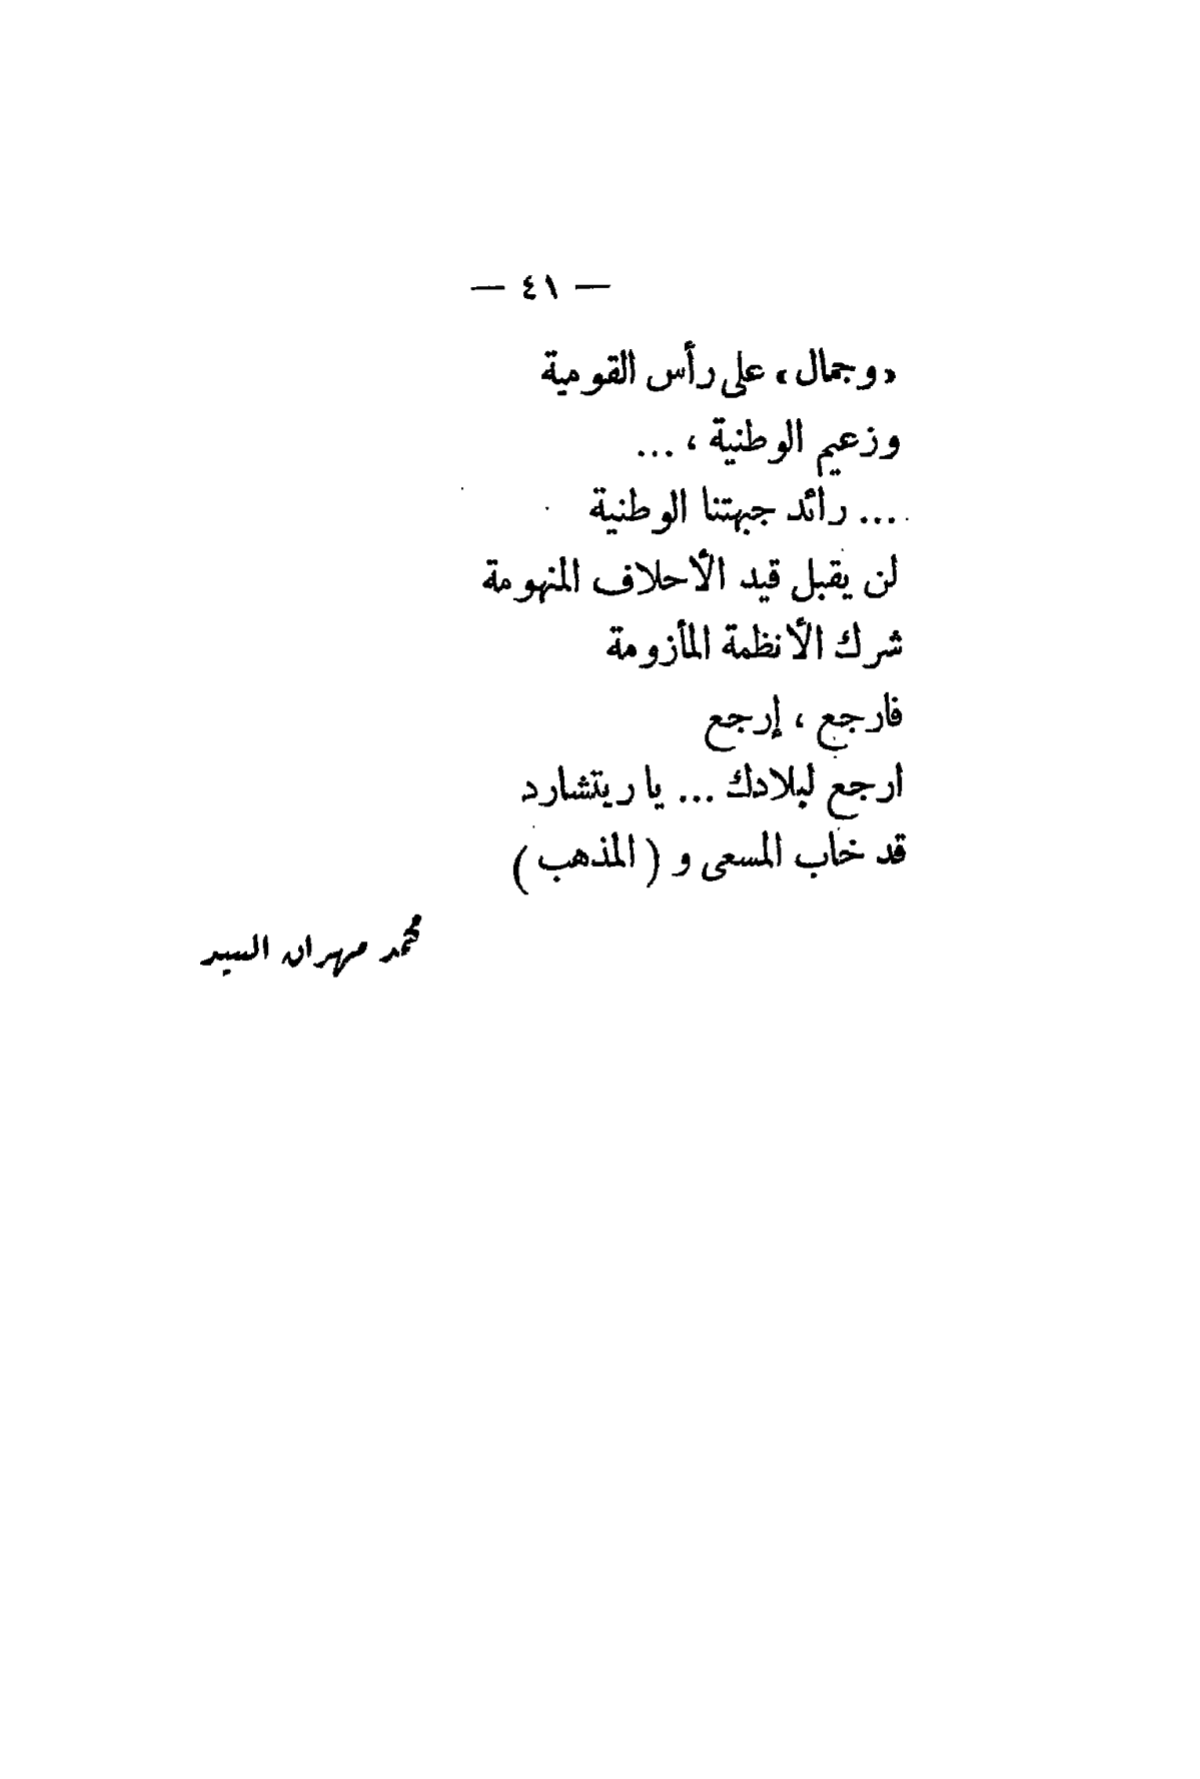 — ٤١ —
«وجمال» على رأس القومية
وزعيم الوطنية ، ...
... رائد جبهتنا الوطنية
لن يقبل قيد الأحلاف المنهومة
شرك الأنظمة المأزومة
فارجع ، إرجع
ارجع لبلادك ... يا ريتشارد
قد خاب المسعى و ( المذهب )
محمد مهران السيد